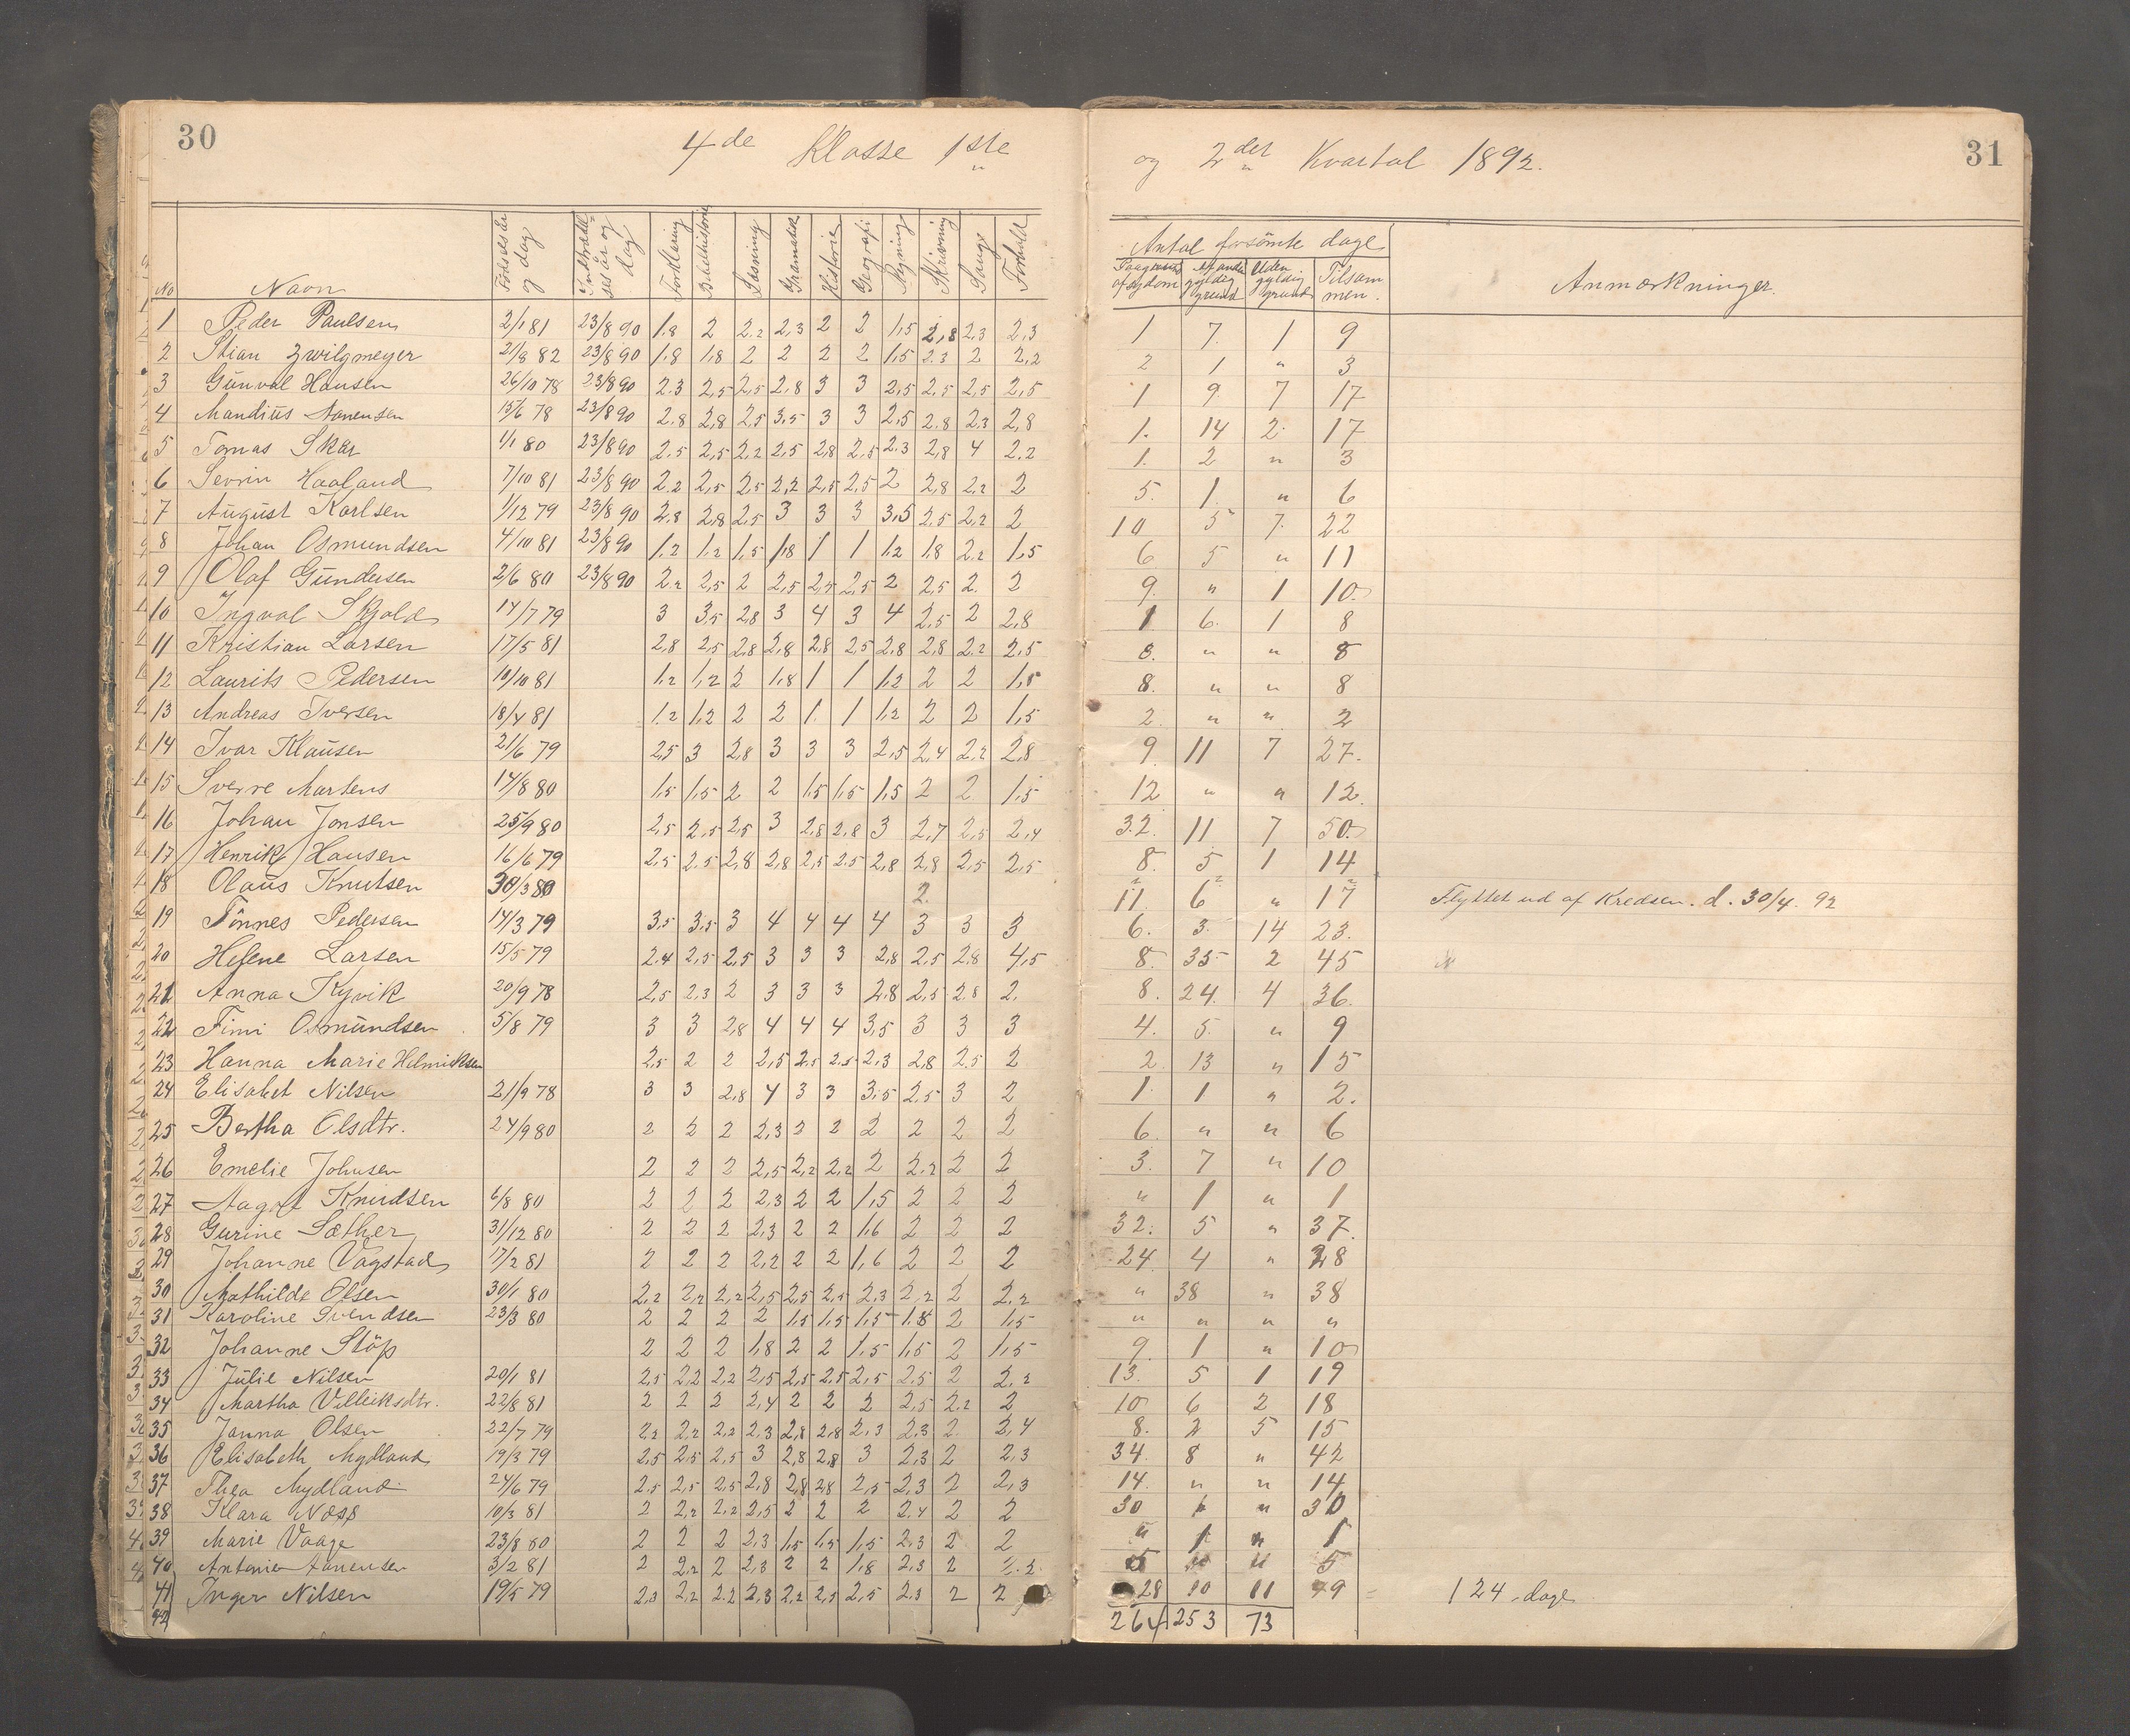 30
4de Klasse 1ste
og 2det Kvartal 1892.
31
No Navn Födselsår og dag Indtrædelsesår og dag Forklaring Bibelhistorie Læsning Gramatik Historie Geografi Regning Skrivning Sang Forhold
Antal forsömte dage
Paagrund af sygdom af anden gyldig grund Uden gyldig grund Tilsammen. Anmærkninger.
1 Peder Paulsen 2/1 81 23/8 90 1.8 2 2.2 2,3 2 2 1,5 2,8 2,3 2,3 1 7. 1 9
2 Stian Zwilgmeyer 21/8 82 23/8 90 1,8 1,8 2 2 2 2 1,5 2.3 2 2,2 2 1 " 3
3 Gunval Hansen 26/10 78 23/8 90 2.3 2,5 2,5 2,8 3 3 2,5 2,5 2,5 2,5 1 9. 7 17
4 Mandius Aanensen 15/6 78 23/8 90 2.8 2,8 2,5 3,5 3 3 2,5 2.8 2.3 2,8 1. 14 2. 17
5 Tomas Skår 1/1 80 23/8 90 2.5 2,5 2,2 2,5 2,8 2,5 2.3 2,8 4 2.2 1. 2 " 3
6 Sevrin Haaland 7/10 81 23/8 90 2.2 2,5 2,5 2,2 2,5 2,5 2 2,8 2,2 2 5. 1. " 6
7 August Karlsen 1/12 79 23/8 90 2,8 2,8 2,5 3 3 3 3,5 2,5 2,2 2 10 5 7. 22
8 Johan Osmundsen 4/10 81 23/8 90 1,2 1,2 1,5 1,8 1 1 1,2 1,8 2.2 1,5 6 5 " 11
9 Olaf Gundersen 2/6 80 23/8 90 2.2 2,5 2 2,5 2,5 2,5 2 2,5 2. 2 9. " 1 10.
10 Ingval Skjold 14/7 79 3 3,5 2,8 3 4 3 4 2,5 2 2,8 1 6. 1 8
11 Kristian Larsen 17/5 81 2,8 2,5 2,8 2,8 2,8 2,5 2,8 2,8 2,2 2,5 8. " " 8
12 Laurits Pedersen 10/10 81 1,2 1,2 2 1,8 1 1 1,2 2 2 1,5 8. " " 8
13 Andreas Iversen 18/4 81 1.2 1,2 2 2 1. 1 1,2 2 2 1,5 2. " " 2
14 Ivar Klausen 21/6 79 2,5 3 2,8 3 3 3 2,5 2,4 2,2 2,8 9. 11 7 27.
15 Sverre Martens 14/8 80 1,5 1,5 2 2 1,5 1,5 1,5 2 2 1,5 12 " " 12.
16 Johan Jonsen 25/9 80 2,5 2,5 2,5 3 2,8 2,8 3 2,7 2,5 2,4 32. 11 7 50.
17 Henrik Hansen 16/6 79 2,5 2.5 2,8 2,8 2,5 2.5 2,8 2,8 2,5 2,5 8. 5 1 14
18 Olaus Knutsen 30/3 80 2. 11. 6 " 17 Flyttet ud af Kredsen. d. 30/4. 92
19 Tönnes Pedersen 14/3 79 3,5 3,5 3 4 4 4 4 3 3 3 6. 3. 14 23.
20 Helene Larsen 15/5 79 2.4 2,5 2,5 3 3 3 2,8 2,5 2,8 4,5 8. 35 2 45
21 Anna Kyvik 20/9 78 2,5 2,3 2 3 3 3 2,8 2,5 2.8 2. 8. 24. 4 36.
22 Fimi Osmundsen 5/8 79 3 3 2,8 4 4 4 3,5 3 3 3 4. 5. " 9
23 Hanna Marie Helmiksen 2,5 2 2 2,5 2,5 2,5 2,3 2,8 2.5 2 2. 13 " 15
24 Elisabet Nilsen 21/9 78 3 3 2,8 4 3 3 3,5 2,5 3 2 1. 1 " 2.
25 Bertha Olsdtr. 24/9 80 2 2 2 2,3 2 2 2 2 2 2 6. " " 6
26 Emelie Johnsen 2 2 2 2,5 2,2 2,2 2 2,2 2 2 3. 7 " 10
27 Aagot Knudsen 6/8 80 2 2 2 2,3 2 2 1,5 2 2 2 " 1 " 1
28 Gurine Sæther 31/12 80 2 2 2 2,3 2 2 1,6 2 2 2 32. 5 " 37.
29 Johanne Vagstad 17/2 81 2 2 2 2,2 2 2 1,6 2 2 2 24. 4 " 28
30 Mathilde Olsen 30/1 80 2,2 2,2 2,2 2,5 2,5 2,5 2,3 2,2 2 2,2 " 38 " 38
31 Karoline Svendsen 23/3 80 2 2 2 2 1,5 1,5 1,5 1.8 2 1,5 " " " "
32 Johanne Stöp 2 2 2 1,8 2 2 1,5 1,5 2 1,5 9. 1 " 10
33 Julie Nilsen 20/1 81 2,5 2,2 2,2 2,5 2,5 2,5 2,5 2.5 2 2,2 13. 5 1 19
34 Martha Villeiksdtr. 22/8 81 2 2 2 2,4 2 2 2 2,5 2,2 2 10 6 2 18
35 Janna Olsen 22/7 79 2,2 2,2 2,2 2,3 2,8 2,8 2,3 2,3 2. 2,4 8. 2 5 15
36 Elisabeth Mydland 19/3 79 2,5 2,5 2,5 3 2,8 2,8 3 2,3 2 2,3 34. 8 " 42
37 Thea Mydland 24/6 79 2,5 2,5 2,5 2,8 2,8 2,8 2,5 2,3 2 2,3 14. " " 14
38 Klara Næss 10/3 81 2 2,2 2,2 2,5 2 2 2 2,4 2 2 30 " 30
39 Marie Vaage 23/8 80 2 2 2 2,3 1,5 1,5 1,5 2,3 2 2 " 1 " 1
40 Antonie Aanensen 3/2 81 2 2,2 2 2,3 2 2 1,8 2,3 2 2.2. 5 " " 5
41 Inger Nilsen 19/5 79 2,3 2,2 2.2 2,3 2,2 2,5 2,5 2,3 2 2 28 10 11 49 124 dage
42 264 253 73